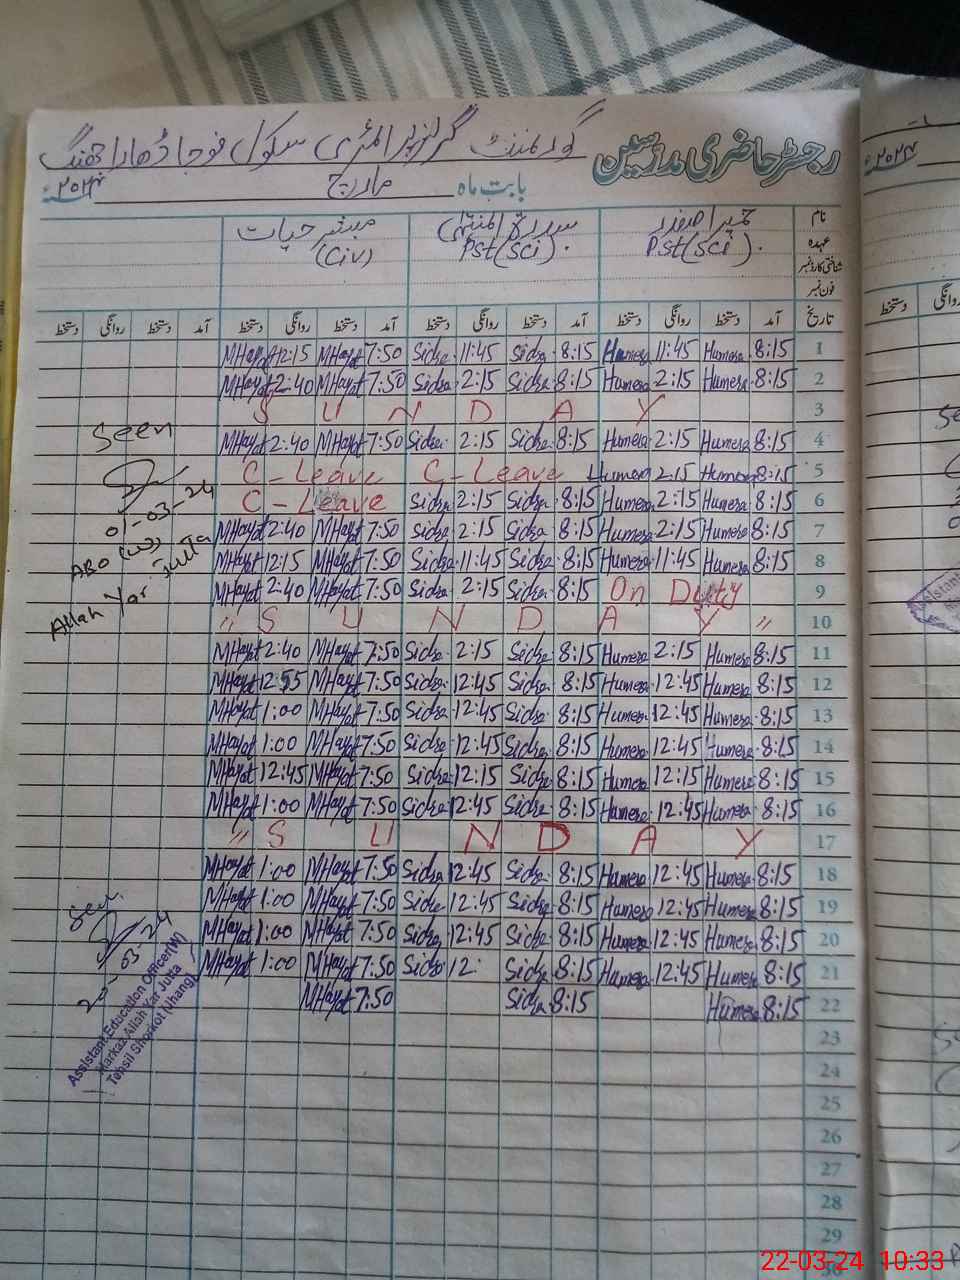 رجسٹر حاضری مدرسین گورنمنٹ گرلز پرائمری سکول فوجا ڈھارا جھنگ
بابت ماہ مارچ ۲۰۲۴ء
نام حمیرا صفدر سدرۃ المنتہٰی مبشر حیات
عہدہ Pst(sci). Pst(sci). (Civ)
شناختی کارڈ نمبر
فون نمبر
تاریخ آمد دستخط روانگی دستخط آمد دستخط روانگی دستخط آمد دستخط روانگی دستخط آمد دستخط روانگی دستخط
MHayat 12:15 MHayat 7:50 Sidra 11:45 Sidra 8:15 Humera 11:45 Humera 8:15 1
MHayat 2:40 MHayat 7:50 Sidra 2:15 Sidra 8:15 Humera 2:15 Humera 8:15 2
S U N D A Y 3
MHayat 2:40 MHayat 7:50 Sidra 2:15 Sidra 8:15 Humera 2:15 Humera 8:15 4
C - Leave C - Leave Humera 2:15 Humera 8:15 5
C - Leave Sidra 2:15 Sidra 8:15 Humera 2:15 Humera 8:15 6
MHayat 2:40 MHayat 7:50 Sidra 2:15 Sidra 8:15 Humera 2:15 Humera 8:15 7
MHayat 12:15 MHayat 7:50 Sidra 11:45 Sidra 8:15 Humera 11:45 Humera 8:15 8
MHayat 2:40 MHayat 7:50 Sidra 2:15 Sidra 8:15 On Duty 9
" S U N D A Y " 10
MHayat 2:40 MHayat 7:50 Sidra 2:15 Sidra 8:15 Humera 2:15 Humera 8:15 11
MHayat 12:55 MHayat 7:50 Sidra 12:45 Sidra 8:15 Humera 12:45 Humera 8:15 12
MHayat 1:00 MHayat 7:50 Sidra 12:45 Sidra 8:15 Humera 12:45 Humera 8:15 13
MHayat 1:00 MHayat 7:50 Sidra 12:45 Sidra 8:15 Humera 12:45 Humera 8:15 14
MHayat 12:45 MHayat 7:50 Sidra 12:15 Sidra 8:15 Humera 12:15 Humera 8:15 15
MHayat 1:00 MHayat 7:50 Sidra 12:45 Sidra 8:15 Humera 12:45 Humera 8:15 16
" S U N D A Y 17
MHayat 1:00 MHayat 7:50 Sidra 12:45 Sidra 8:15 Humera 12:45 Humera 8:15 18
MHayat 1:00 MHayat 7:50 Sidra 12:45 Sidra 8:15 Humera 12:45 Humera 8:15 19
MHayat 1:00 MHayat 7:50 Sidra 12:45 Sidra 8:15 Humera 12:45 Humera 8:15 20
MHayat 1:00 MHayat 7:50 Sidra 12: Sidra 8:15 Humera 12:45 Humera 8:15 21
MHayat 7:50 Sidra 8:15 Humera 8:15 22
23
24
25
26
27
28
29
Seen
01-03-24
AEO (W)
Allah Yar Jutta
Seen
20-03-24
Assistant Education Officer(W)
Markaz Allah Yar Jutta
Tehsil Shorkot (Jhang)
۲۰۲۴ء
دستخط
22-03-24 10:33